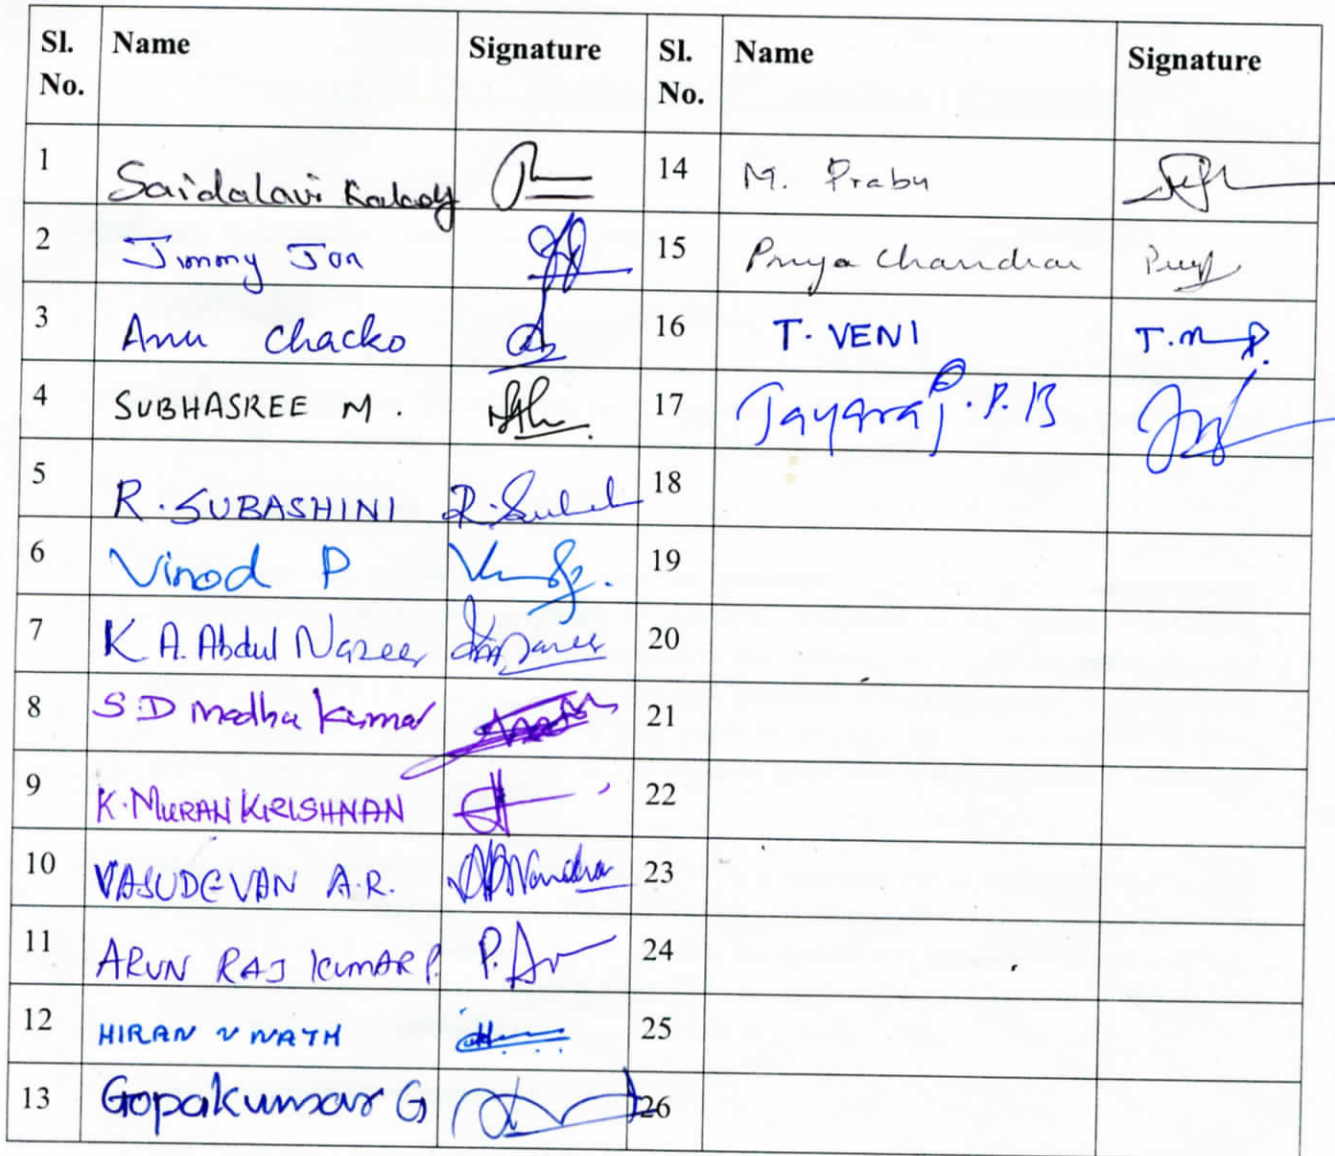 Sl. No. Name Signature Sl. No. Name Signature
1 Saidalavi Kalady 14 M. Prabu
2 Jimmy Jose 15 Priya Chandran
3 Anu Chacko 16 T. VENI
4 SUBHASREE M. 17 Jayaraj P. B
5 R. SUBASHINI 18
6 Vinod P 19
7 K A. Abdul Nazeer 20
8 S D Madhu Kumar 21
9 K. MURALI KRISHNAN 22
10 VASUDEVAN A.R. 23
11 ARUN RAJ KUMAR P. P. Ar 24
12 HIRAN V NATH 25
13 Gopakumar G 26